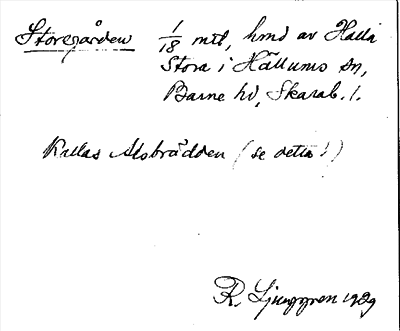 Storegården 1/18 mtl, hmd av Halla
Stora i Hällums sn,
Barne hd, Skarab. l.
Kallas Alsbrådden (se detta!)
R. Ljunggren 1929